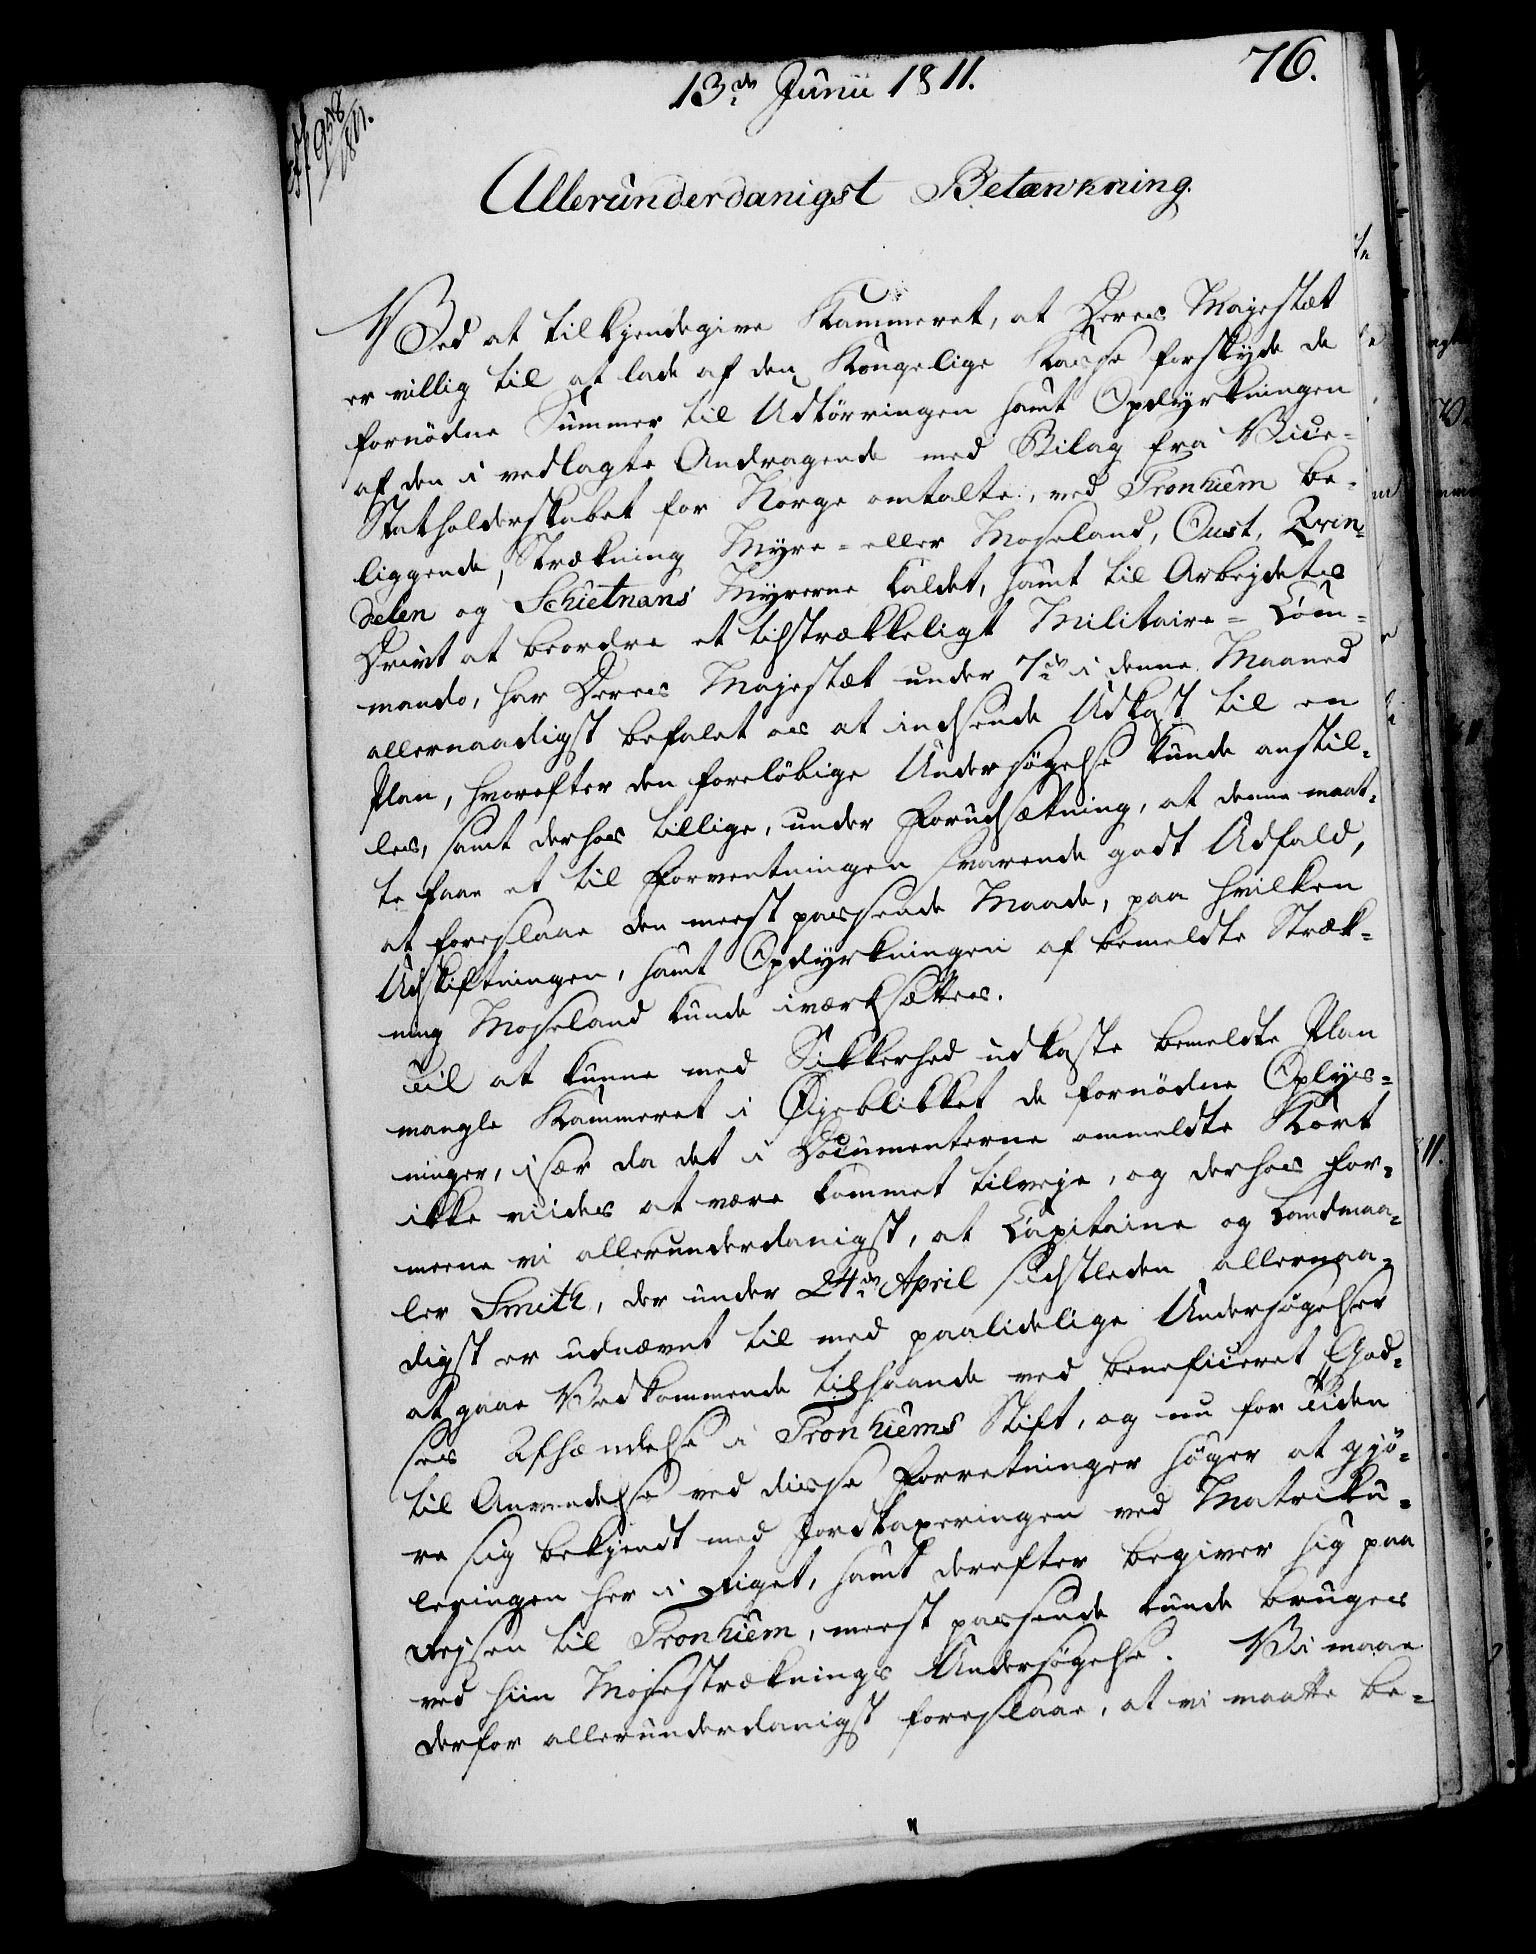 13de Junii 1811.
76.
958/1811.
Allerunderdanigst Betænkning.
Ved at tilkjendegive Kammeret, at Deres Majestæt
er villig til at lade af den Kongelige Kasse forskyde de
fornödne Summer til Udtörringen samt Opdyrkningen
af den i vedlagte Andragende med Bilag fra Vice-
Statholderskabet for Norge omtalte, ved Tronhiem be-
liggende, Strækning Myre- eller Moseland, Oust,
og Schietnans Myrerne kaldet, samt til Arbejdets
Drivt at beordre et tilstrækkeligt Militaire-Com-
mando, har Deres Majestæt under 7de i denne Maaned
allernaadigst befalet os at indsende Udkast til en
Plan, hvorefter den foreløbige Undersøgelse kunde anstil-
les, samt derhos tillige, under Forudsætning, at denne maat-
te faae et til Forventningen svarende godt Udfald,
at foreslaae den meest passende Maade, paa hvilken
Udskiftningen, samt Opdyrkningen af bemeldte Stræk-
ning Moseland kunde iværksættes.
Til at kunne med Sikkerhed udkaste bemeldte Plan
mangle Kammeret i Øjeblikket de fornödne Oplys-
ninger, især da det i Documenterne ommeldte Kort
ikke viides at være kommet tilveje, og derhos for-
meene vi allerunderdanigst, at Capitaine og Landmaa-
ler Smith, der under 24de April sidstleden allernaa-
digst er udnævnt til med paalidelige Undersøgelser
at gaae Vedkommende tilhaande ved beneficeret God-
ses Afhændelse i Tronhiems Stift, og nu for Tiden
til Anvendelse ved disse Forretninger søger at gjö-
re sig bekjendt med Jordtaxeringen ved Matriku-
leringen her i Riget, samt derefter begiver sig paa
Rejsen til Tronhiem, meest passende kunde bruges
ved hiin Mosestræknings Undersøgelse. Vi maae
derfor allerunderdanigst foreslaae, at vi maatte be-